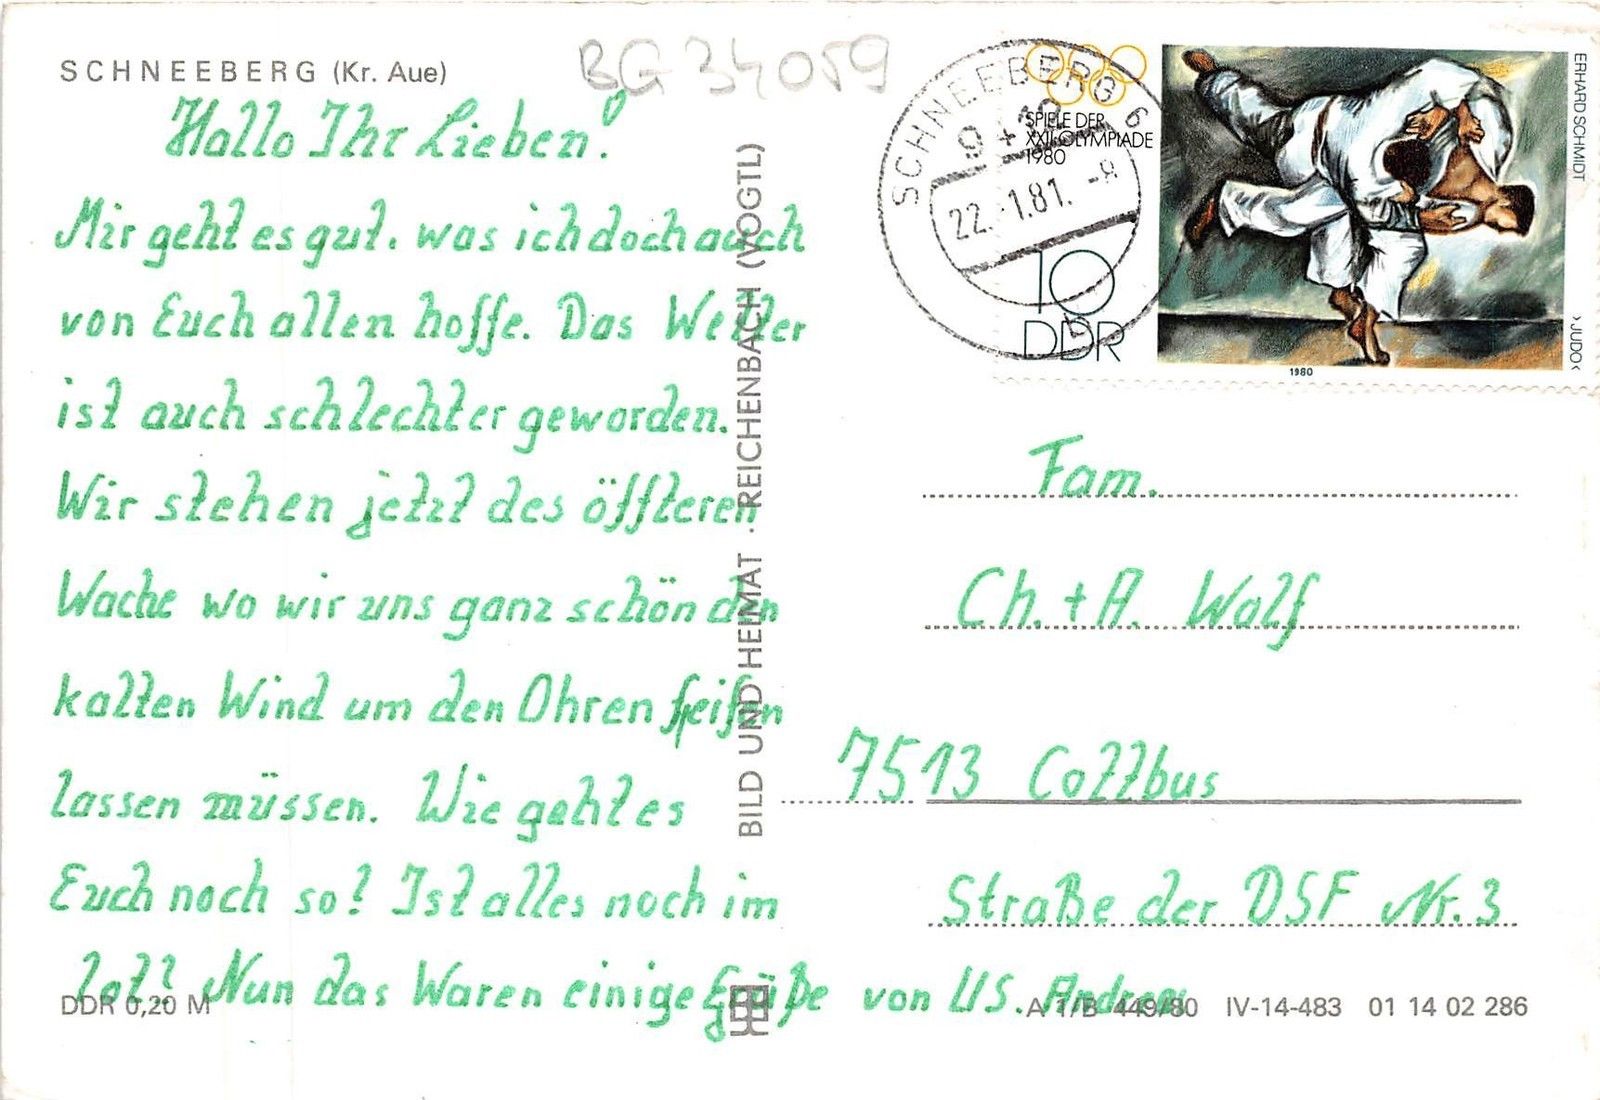 SCHNEEBERG (Kr. Aue)
BG 34059
Hallo Ihr Lieben!
Mir geht es gut. was ich doch auch
von Euch allen hoffe. Das Wetter
ist auch schlechter geworden.
Wir stehen jetzt des öffteren
Wache wo wir uns ganz schön den
kalten Wind um den Ohren
lassen müssen. Wie geht es
Euch noch so? Ist alles noch im
Lot? Nun das Waren einige Grüße von US. Andreas
DDR 0,20 M
BILD UND HEIMAT . REICHENBACH (VOGTL)
A 1/B 449/80 IV-14-483 01 14 02 286
SCHNEEBERG 6
22.-1.81.-8
SPIELE DER
XXII. OLYMPIADE
1980
10
DDR
ERHARD SCHMIDT
›JUDO‹
1980
Fam.
Ch. + A. Wolf
7513 Cottbus
Straße der DSF Nr. 3